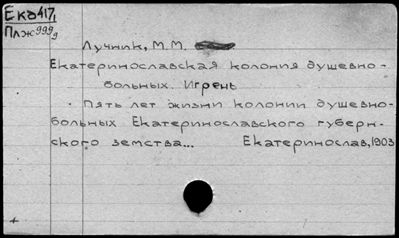 Екб417,
Плж999
Лучник, М.М.
Екатеринославская колония душевно-
больных. Игрень
· Пять лет жизни колонии душевно-
больных Екатеринославского губерн-
ского земства... Екатеринослав, 1903